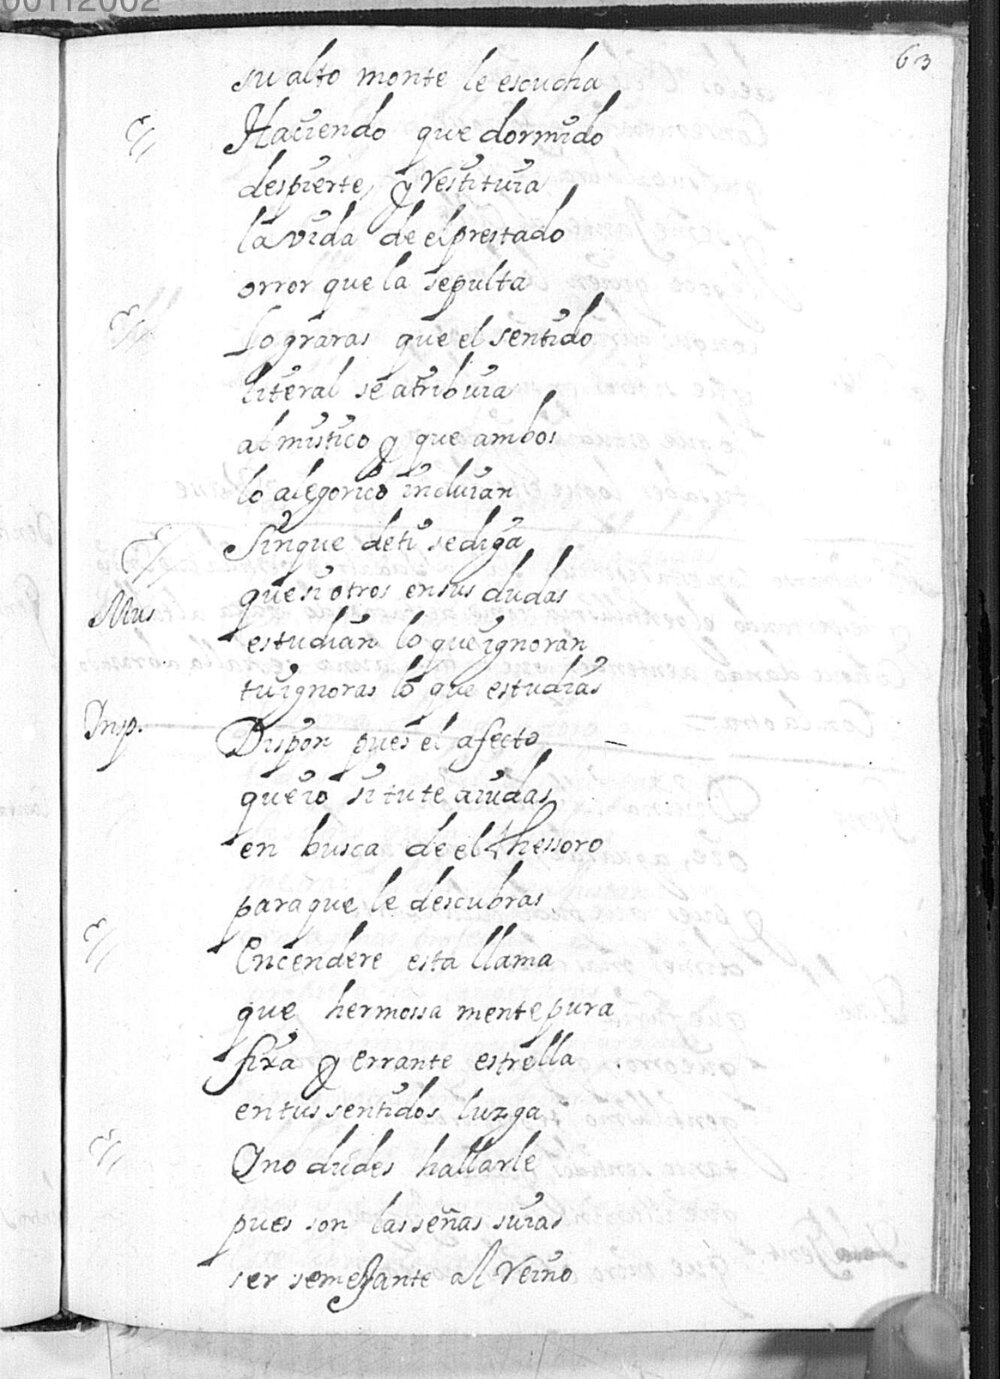 00112002
63
su alto monte le escucha
Haciendo que dormido
despierte, y Restituia
la vida de el prestado
orror que la sepulta
Lograras que el sentido
literal se atribuia
al mistico y que ambos
lo alegorico incluian
sin que de ti se diga
Mus
que si otros en sus dudas
estudian lo que ignoran
tu ignoras lo que estudias
Insp.
Dispon pues el afecto
que io si tu te aiudas
en busca de el thessoro
para que le descubras
Encendere esta llama
que hermossa mente pura
fixa y errante estrella
en tus sentidos luzga
I no dudes hallarle
pues son las señas suias
ser semejante al Reino